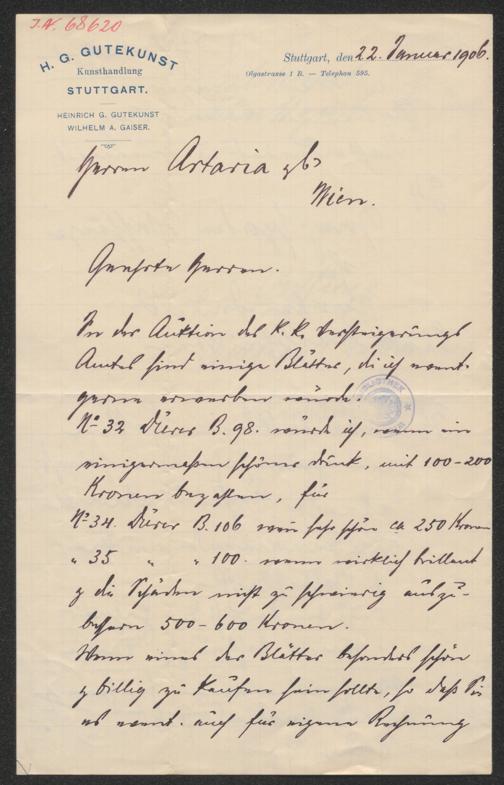 J.N. 68620
H. G. GUTEKUNST
Kunsthandlung
STUTTGART.
HEINRICH G. GUTEKUNST
WILHELM A. GAISER.
Stuttgart, den 22. Januar 1906.
Olgastrasse 1 B. — Telephon 595.
Herren Artaria & Co
Wien.
Geehrte Herren.
In der Auktion des K. K. Versteigerungs
Amtes sind einige Blätter, die ich event.
gerne erwerben würde.
BIBLIOTHEK
No 32 Dürer B. 98. würde ich, wenn ein
einigermaßen schöner Druck, mit 100-200
Kronen bezahlen, für
No 34. Dürer B. 106 wenn sehr schön ca 250 Kronen
„ 35 „ „ 100. wenn wirklich brillant
& die Schäden nicht zu schwierig auszu-
bessern 500-600 Kronen.
Wenn eines der Blätter besonders schön
& billig zu kaufen sein sollte, so daß Sie
es event. auch für eigene Rechnung